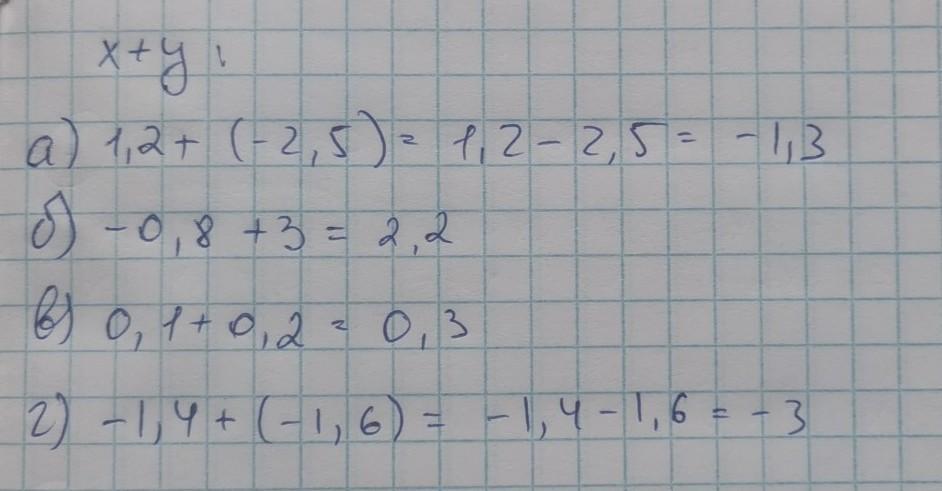 x+y:
а) 1,2+ (-2,5)= 1,2-2,5= -1,3
б) -0,8 +3= 2,2
в) 0,1+0,2= 0,3
г) -1,4+(-1,6)= -1,4-1,6=-3